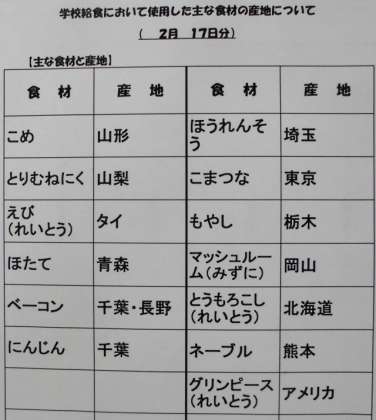 学校給食において使用した主な食材の産地について
( 2月 17日分)
【主な食材と産地】
食 材 産 地 食 材 産 地
こめ 山形 ほうれんそう 埼玉
とりむねにく 山梨 こまつな 東京
えび(れいとう) タイ もやし 栃木
ほたて 青森 マッシュルーム(みずに) 岡山
ベーコン 千葉・長野 とうもろこし(れいとう) 北海道
にんじん 千葉 ネーブル 熊本
グリンピース(れいとう) アメリカ